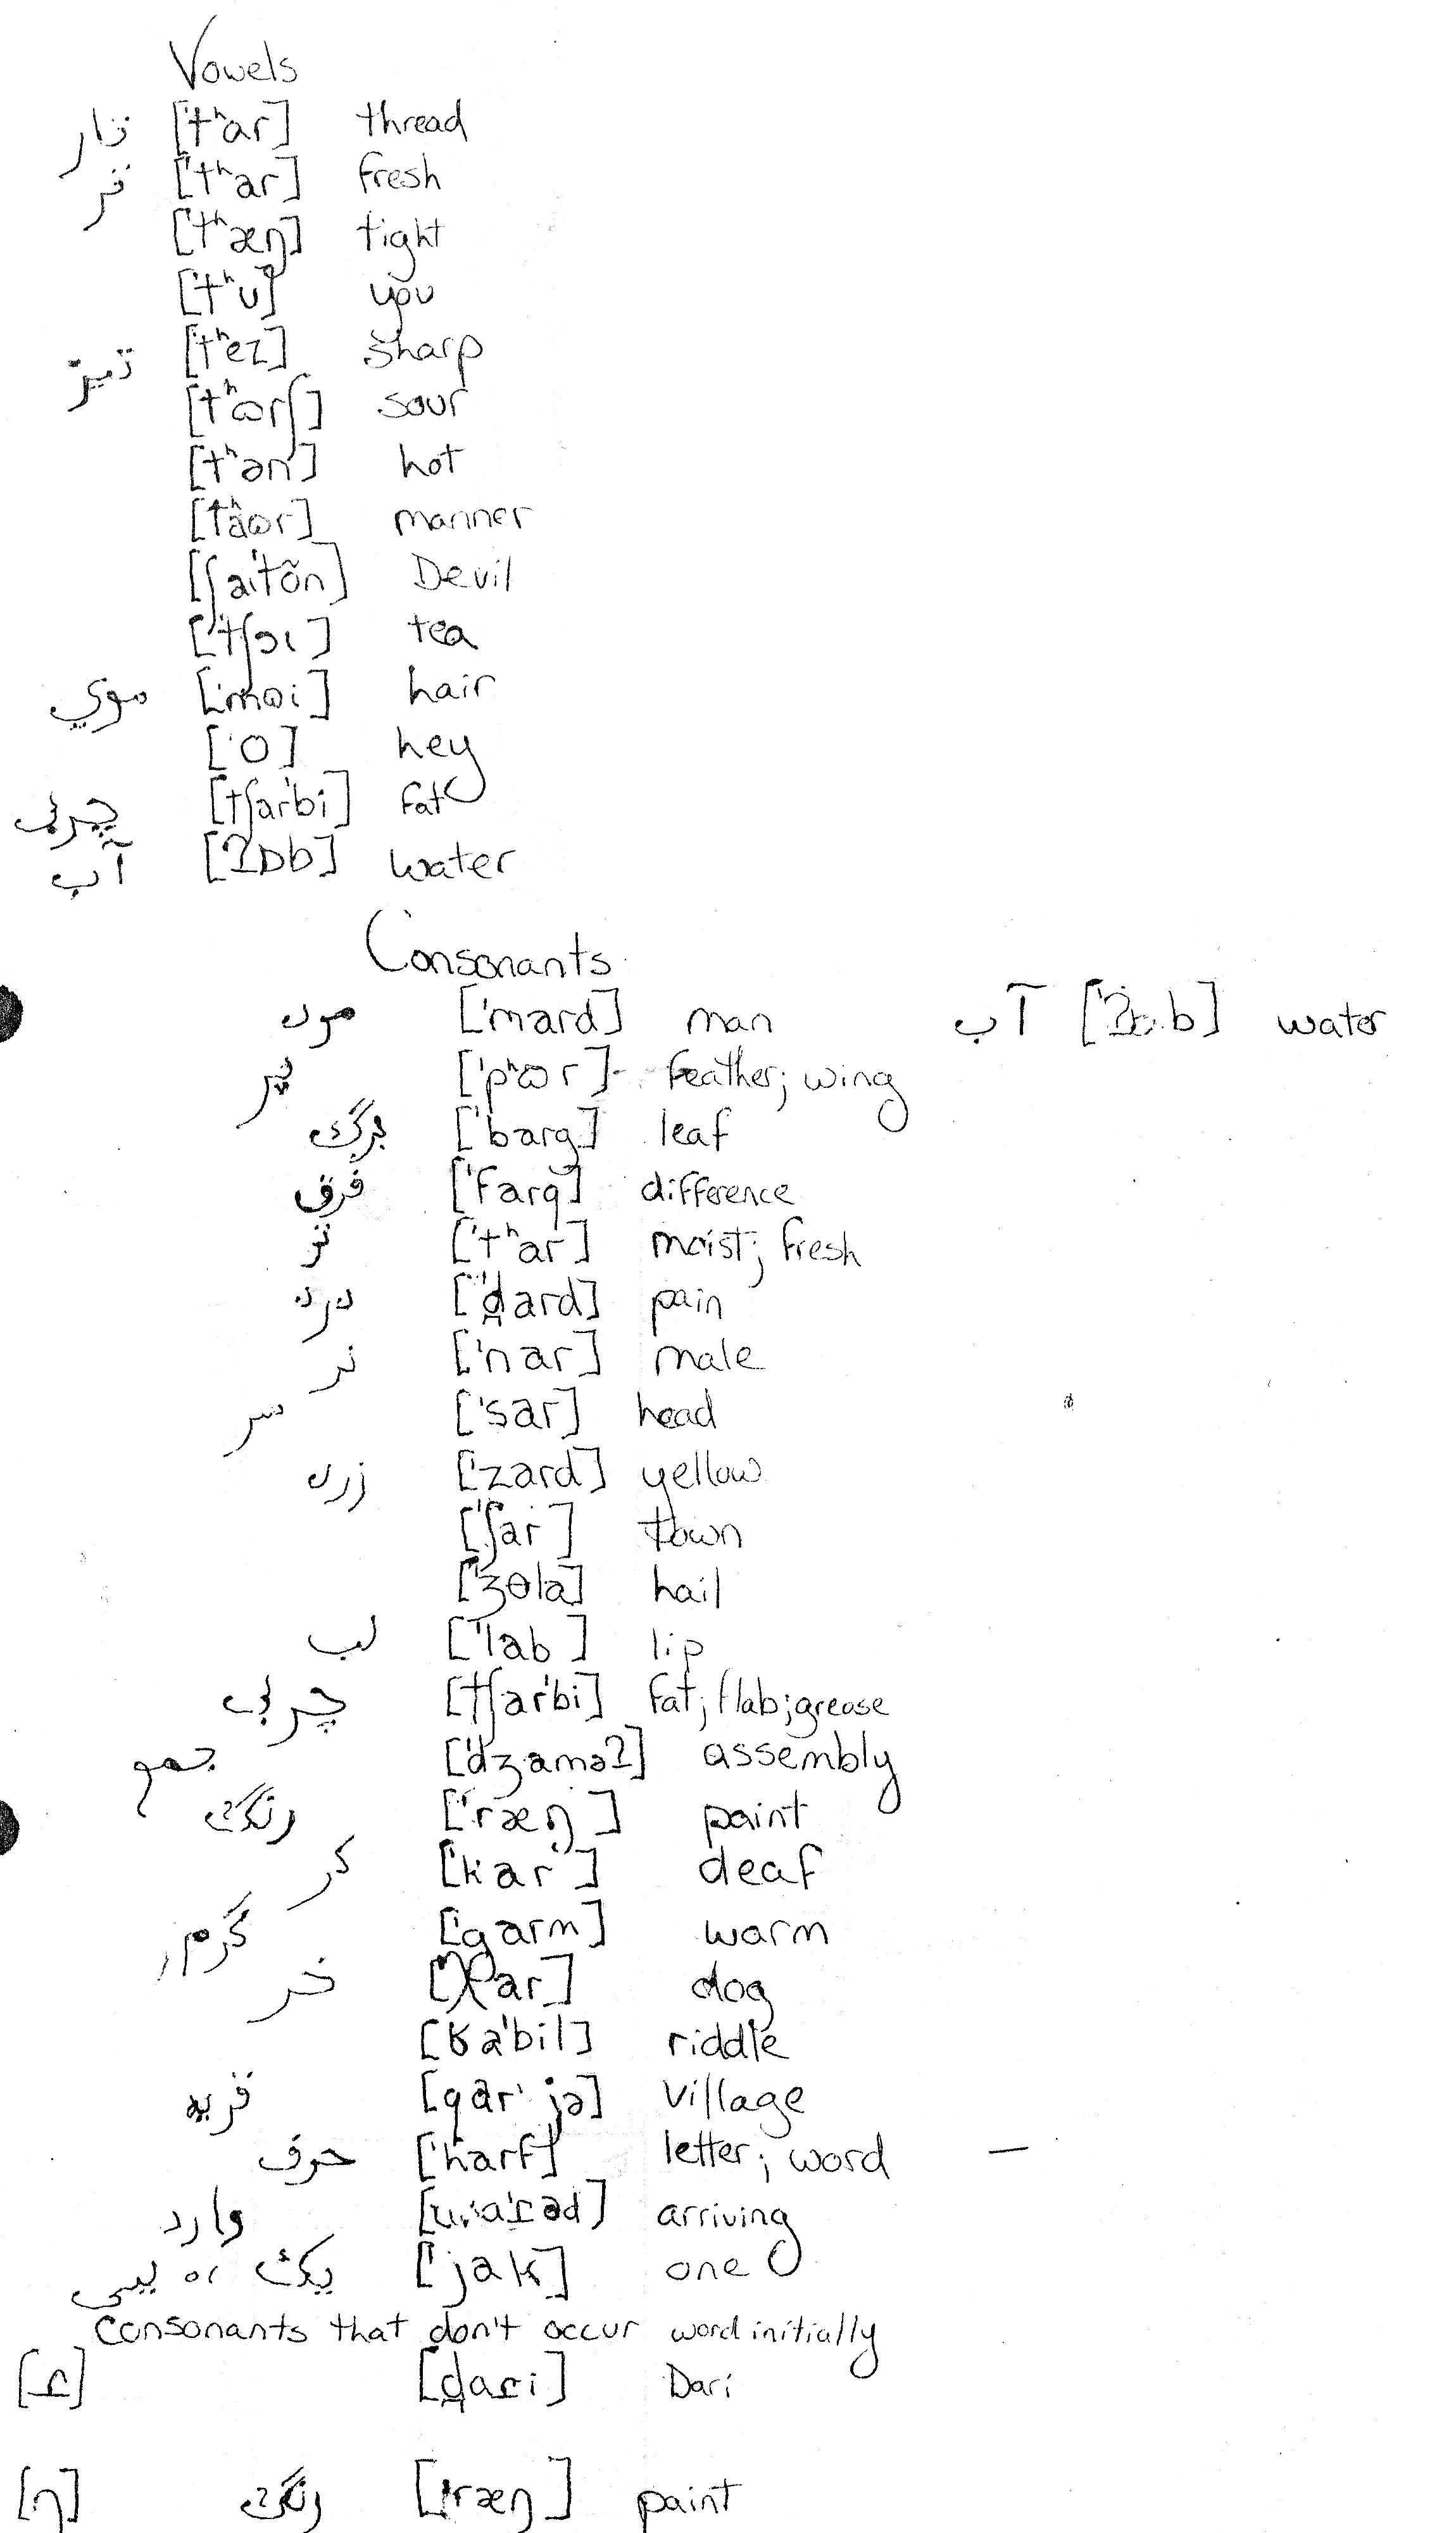 Vowels
تار [ˈtʰar] thread
تر [ˈtʰar] fresh
[ˈtʰæŋ] tight
[ˈtʰu] you
تيز [ˈtʰez] sharp
[ˈtʰɷrʃ] sour
[tʰən] hot
[tʰaɷr] manner
[ʃaɪˈtõn] Devil
[ˈtʃɔɩ] tea
موي [ˈmɷi] hair
[ˈo] hey
چربی [tʃarˈbi] fat
آب [ʔɒb] water
Consonants
[ˈmard] man آب [ˈʔɒb] water
پر [ˈpʰɷr] feather; wing
برگ [ˈbarg] leaf
فرق [ˈfarq] difference
تر [ˈtʰar] moist; fresh
[ˈd̪ard] pain
نر [ˈnar] male
سر [ˈsar] head
زرد [ˈzard] yellow
[ˈʃar] town
[ˈʒɵla] hail
لب [ˈlab] lip
چربی [tʃarˈbi] fat; flab; grease
جمع [ˈdʒaməʔ] assembly
رنگ [ˈræŋ] paint
کر [ˈkar] deaf
گرم [ˈgarm] warm
خر [ˈχar] dog
[ʁaˈbil] riddle
قريه [qarˈjə] village
حرف [ˈharf] letter; word –
وارد arriving
يک [ˈjak] one
consonants that don't occur word initially
[ɾ̲] [d̪aɾ̲i] Dari
[ŋ] رنگ [ˈræŋ] paint